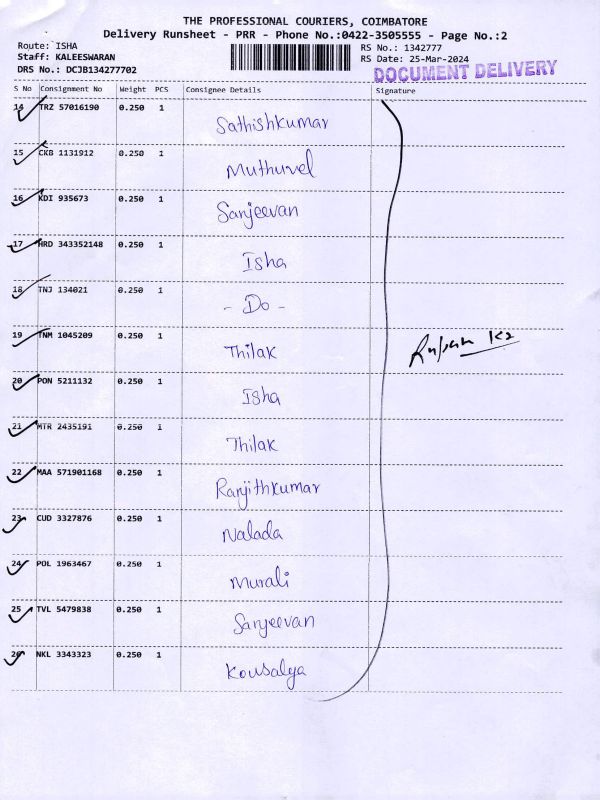 THE PROFESSIONAL COURIERS, COIMBATORE
Delivery Runsheet - PRR - Phone No.:0422-3505555 - Page No.:2
Route: ISHA
Staff: KALEESWARAN
DRS No.: DCJB134277702
RS No.: 1342777
RS Date: 25-Mar-2024
DOCUMENT DELIVERY
S No Consignment No Weight PCS Consignee Details Signature
14 TRZ 57016190 0.250 1 Sathishkumar
15 CKB 1131912 0.250 1 Muthuvel
16 KDI 935673 0.250 1 Sanjeevan
17 HRD 343352148 0.250 1 Isha
18 TNJ 134021 0.250 1 - Do -
19 TNM 1045209 0.250 1 Thilak
20 PON 5211132 0.250 1 Isha
21 MTR 2435191 0.250 1 Thilak
22 MAA 571901168 0.250 1 Ranjithkumar
23 CUD 3327876 0.250 1 Nalada
24 POL 1963467 0.250 1 Murali
25 TVL 5479838 0.250 1 Sanjeevan
26 NKL 3343323 0.250 1 Kousalya